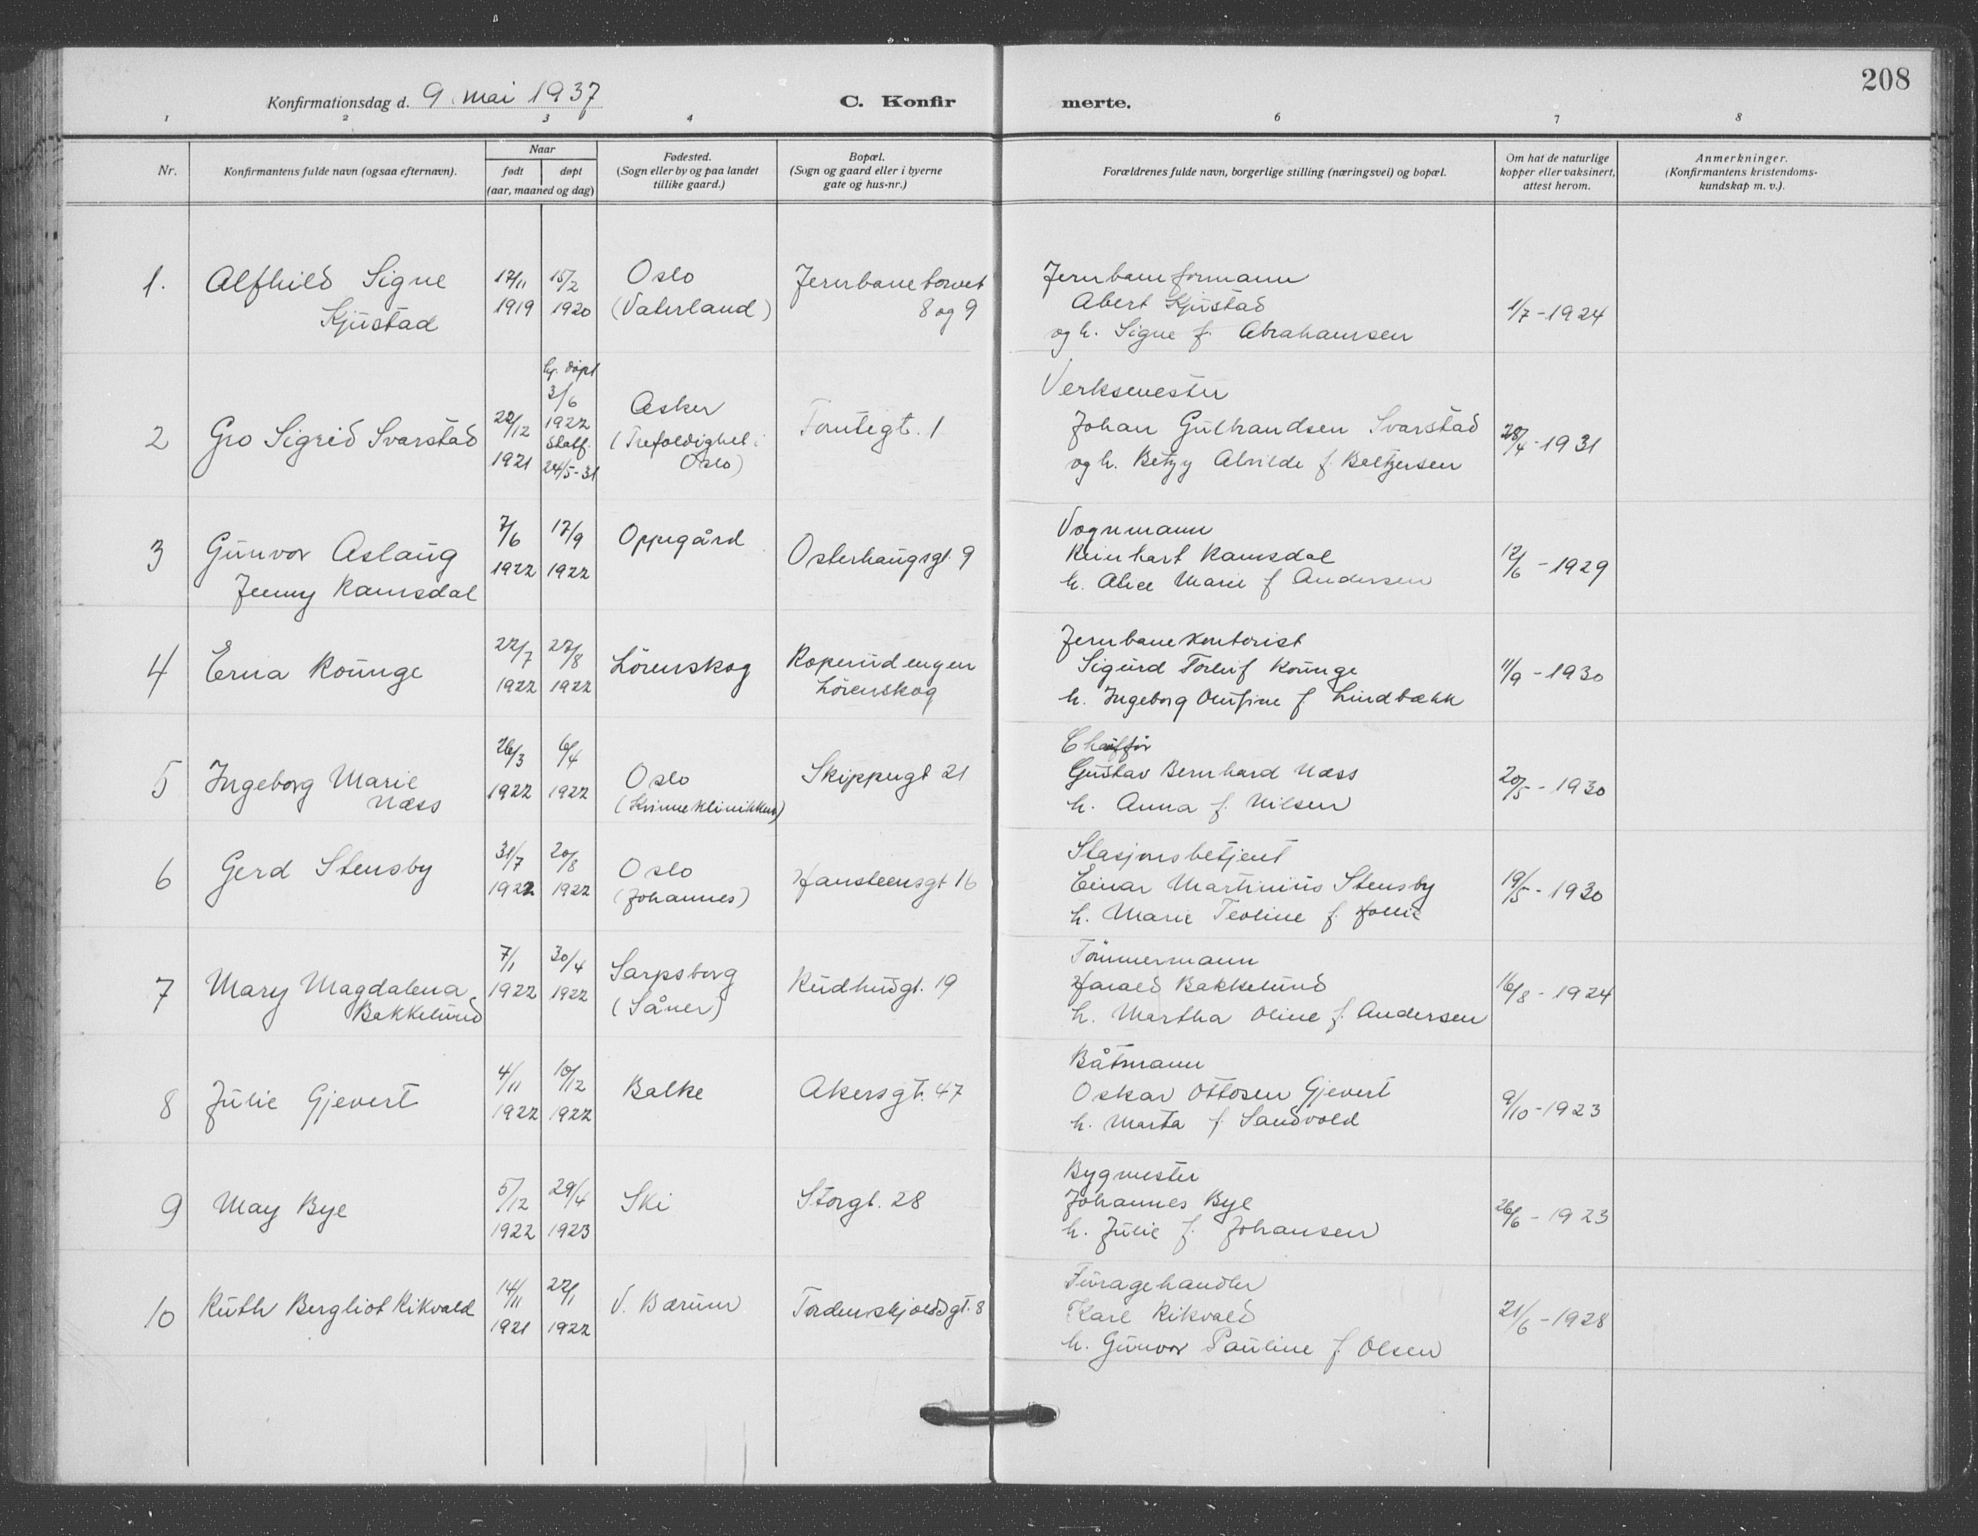 208
Konfirmationsdag d. 9. mai 1937
C. Konfirmerte.
1 2 3 4 6 7 8
Nr.
Konfirmantens fulde navn (ogsaa efternavn).
Naar
født døpt
(aar, maaned og dag)
Fødested.
(Sogn eller by og paa landet
tillike gaard.)
Bopæl.
(Sogn og gaard eller i byerne
gate og hus-nr.)
Forældrenes fulde navn, borgerlige stilling (næringsvei) og bopæl.
Om hat de naturlige
kopper eller vaksinert,
attest herom.
Anmerkninger.
(Konfirmantens kristendoms-
kundskap m. v.).
1.
Alfhild Signe
Kjustad
17/11
1919
15/2
1920
Oslo
(Vaterland)
Jernbanetorvet
8 og 9
Jernbaneformann
Abert Kjustad
og h. Signe f. Abrahamsen
1/7 - 1924
2
Gro Sigrid Svarstad
22/12
1921
hj. døpt
3/6
1922
Statf.
24/5-31
Asker
(Trefoldighet i
Oslo)
Tomtegt. 1
Verksmester
Johan Gulbrandsen Svarstad
og h. Betzy Alvilde f. Beltzersen
28/4-1931
3
Gunvor Aslaug
Jenny Ramsdal
7/6
1922
17/9
1922
Oppegård
Osterhaugsgt. 9
Vognmann
Reinhart Ramsdal
h. Alice Marie f Andersen
12/6 - 1929
4
Erna Rounge
22/7
1922
27/8
1922
Lörenskog
Roperudengen
Lörenskog
Jernbanekontorist
Sigurd Torleif Rounge
h. Ingeborg Olufine f Lindbækk
11/9 - 1930
5
Ingeborg Marie
Næss
26/3
1922
6/4
1922
Oslo
(Kvinneklinikken)
Skippergt 21
Chaufför
Gustav Bernhard Næss
h. Anna f. Nilsen
20/5 - 1930
6
Gerd Stensby
31/7
1922
20/8
1922
Oslo
(Johannes)
Hansteensgt 16
Stasjonsbetjent
Einar Martinius Stensby
h. Marie Teoline f.
19/5 - 1930
7
Mary Magdalena
Bakkelund
7/1
1922
30/4
1922
Sarpsborg
(Såner)
Rudhudgt. 19
Tömmermann
Harald Bakkelund
h. Martha Oline f. Andersen
16/8 - 1924
8
Julie Gjevert
4/11
1922
10/12
1922
Balke
Akersgt. 47
Båtsmann
Oskar Ottosen Gjevert
h. Marta f Sandvold
9/10-1923
9
May Bye
5/12
1922
29/4
1923
Ski
Storgt. 28
Bygmester
Johannes Bye
h. Julie f. Johansen
26/6 - 1923
10
Ruth Bergliot Rikvald
14/11
1921
22/1
1922
V. Bærum
Tordenskjoldsgt. 8
Furagehandler
Karl Rikvald
h. Gunvor Pauline f Olsen
21/6-1928